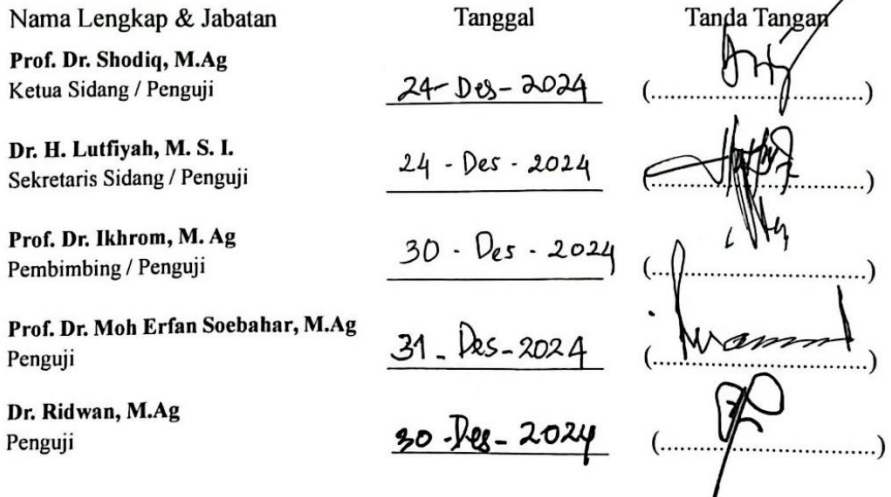 Nama Lengkap & Jabatan Tanggal Tanda Tangan
Prof. Dr. Shodiq, M.Ag
Ketua Sidang / Penguji 24-Des-2024 (..............................)
Dr. H. Lutfiyah, M. S. I.
Sekretaris Sidang / Penguji 24 - Des - 2024 (..............................)
Prof. Dr. Ikhrom, M. Ag
Pembimbing / Penguji 30 - Des - 2024 (..............................)
Prof. Dr. Moh Erfan Soebahar, M.Ag
Penguji 31 - Des - 2024 (..............................)
Dr. Ridwan, M.Ag
Penguji 30 - Des - 2024 (..............................)